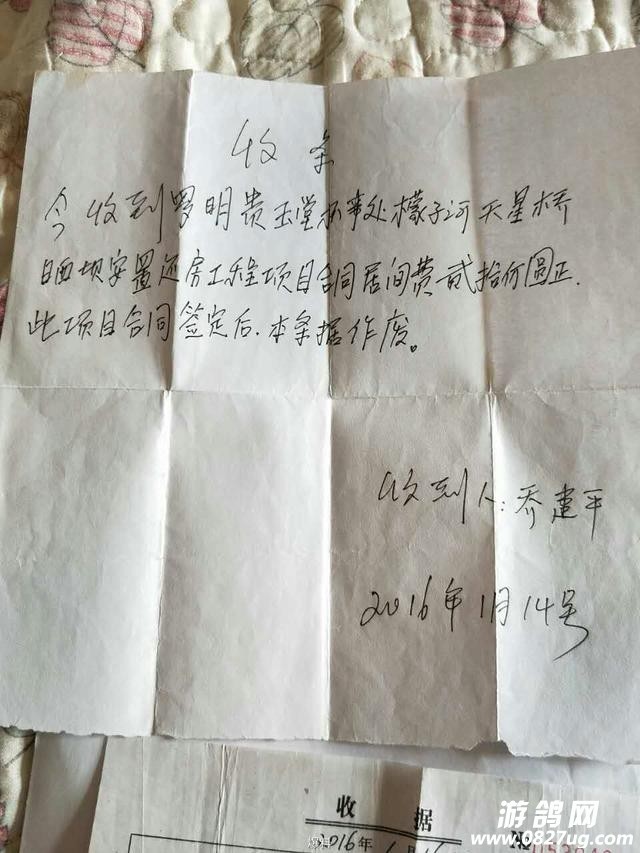 收条
今收到罗明贵玉堂办事处檬子河天星桥
晒坝安置还房工程项目合同居间费贰拾仟圆正.
此项目合同签定后.本条据作废。
收到人:乔建平
2016年1月14号
收 据
2016年
游鸽网
www.0827ug.com